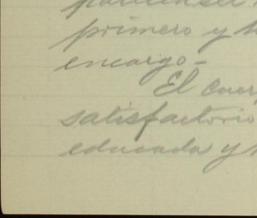 primero y
encargo-
El
satisfactorio
educada y